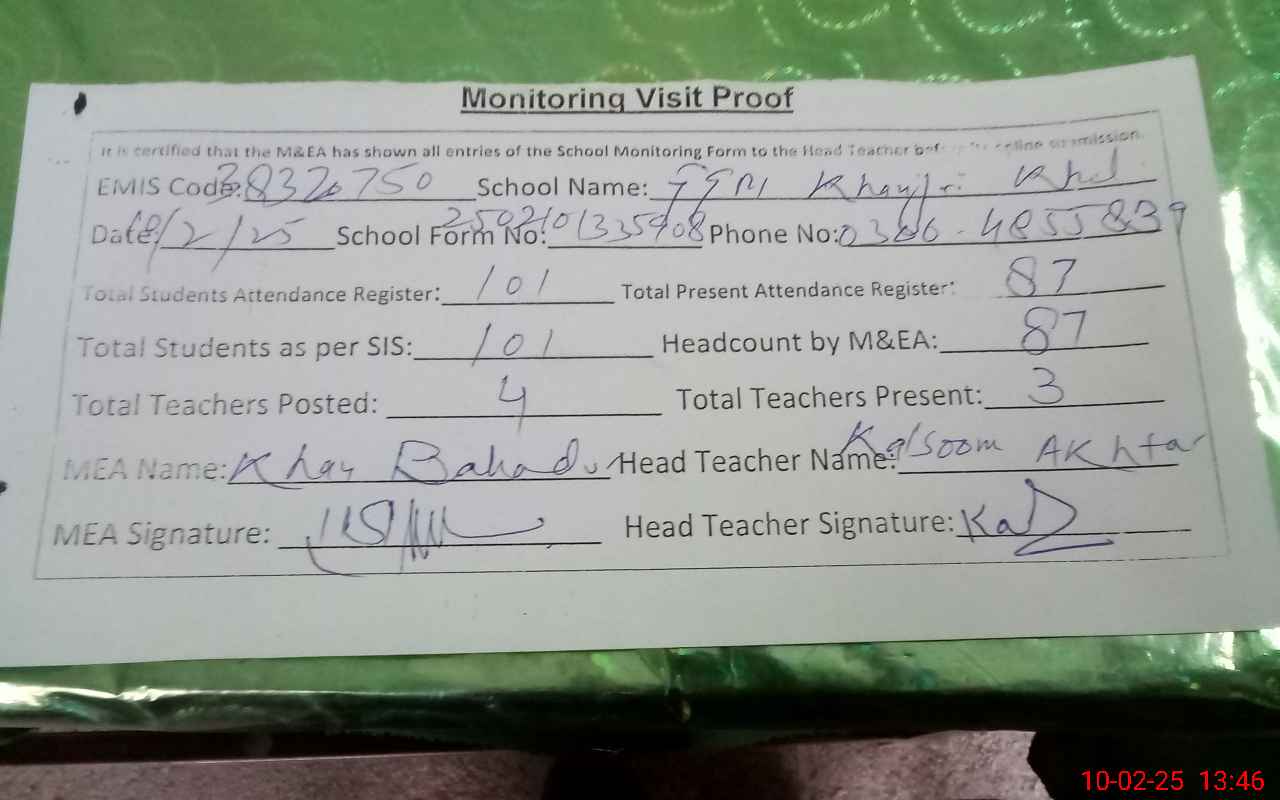 Monitoring Visit Proof
It is certified that the M&EA has shown all entries of the School Monitoring Form to the Head Teacher
EMIS Code: 38320750 School Name: Khd
Date: 10/2/25 School Form No: 2502101335908 Phone No: 0306-4855839
Total Students Attendance Register: 101 Total Present Attendance Register: 87
Total Students as per SIS: 101 Headcount by M&EA: 87
Total Teachers Posted: 4 Total Teachers Present: 3
MEA Name: Khay Bahadur Head Teacher Name: Kalsoom AKhtar
MEA Signature: Head Teacher Signature:
10-02-25 13:46